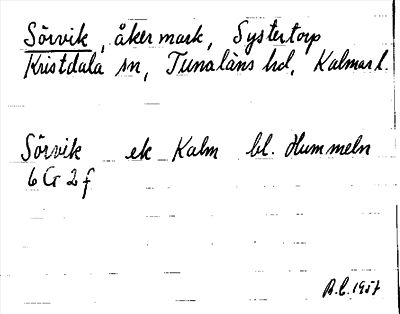 Sörvik, åkermark, Systertorp
Kristdala sn, Tunaläns hd, Kalmar l.
Sörvik ek Kalm bl. Hummeln
6 G 2 f